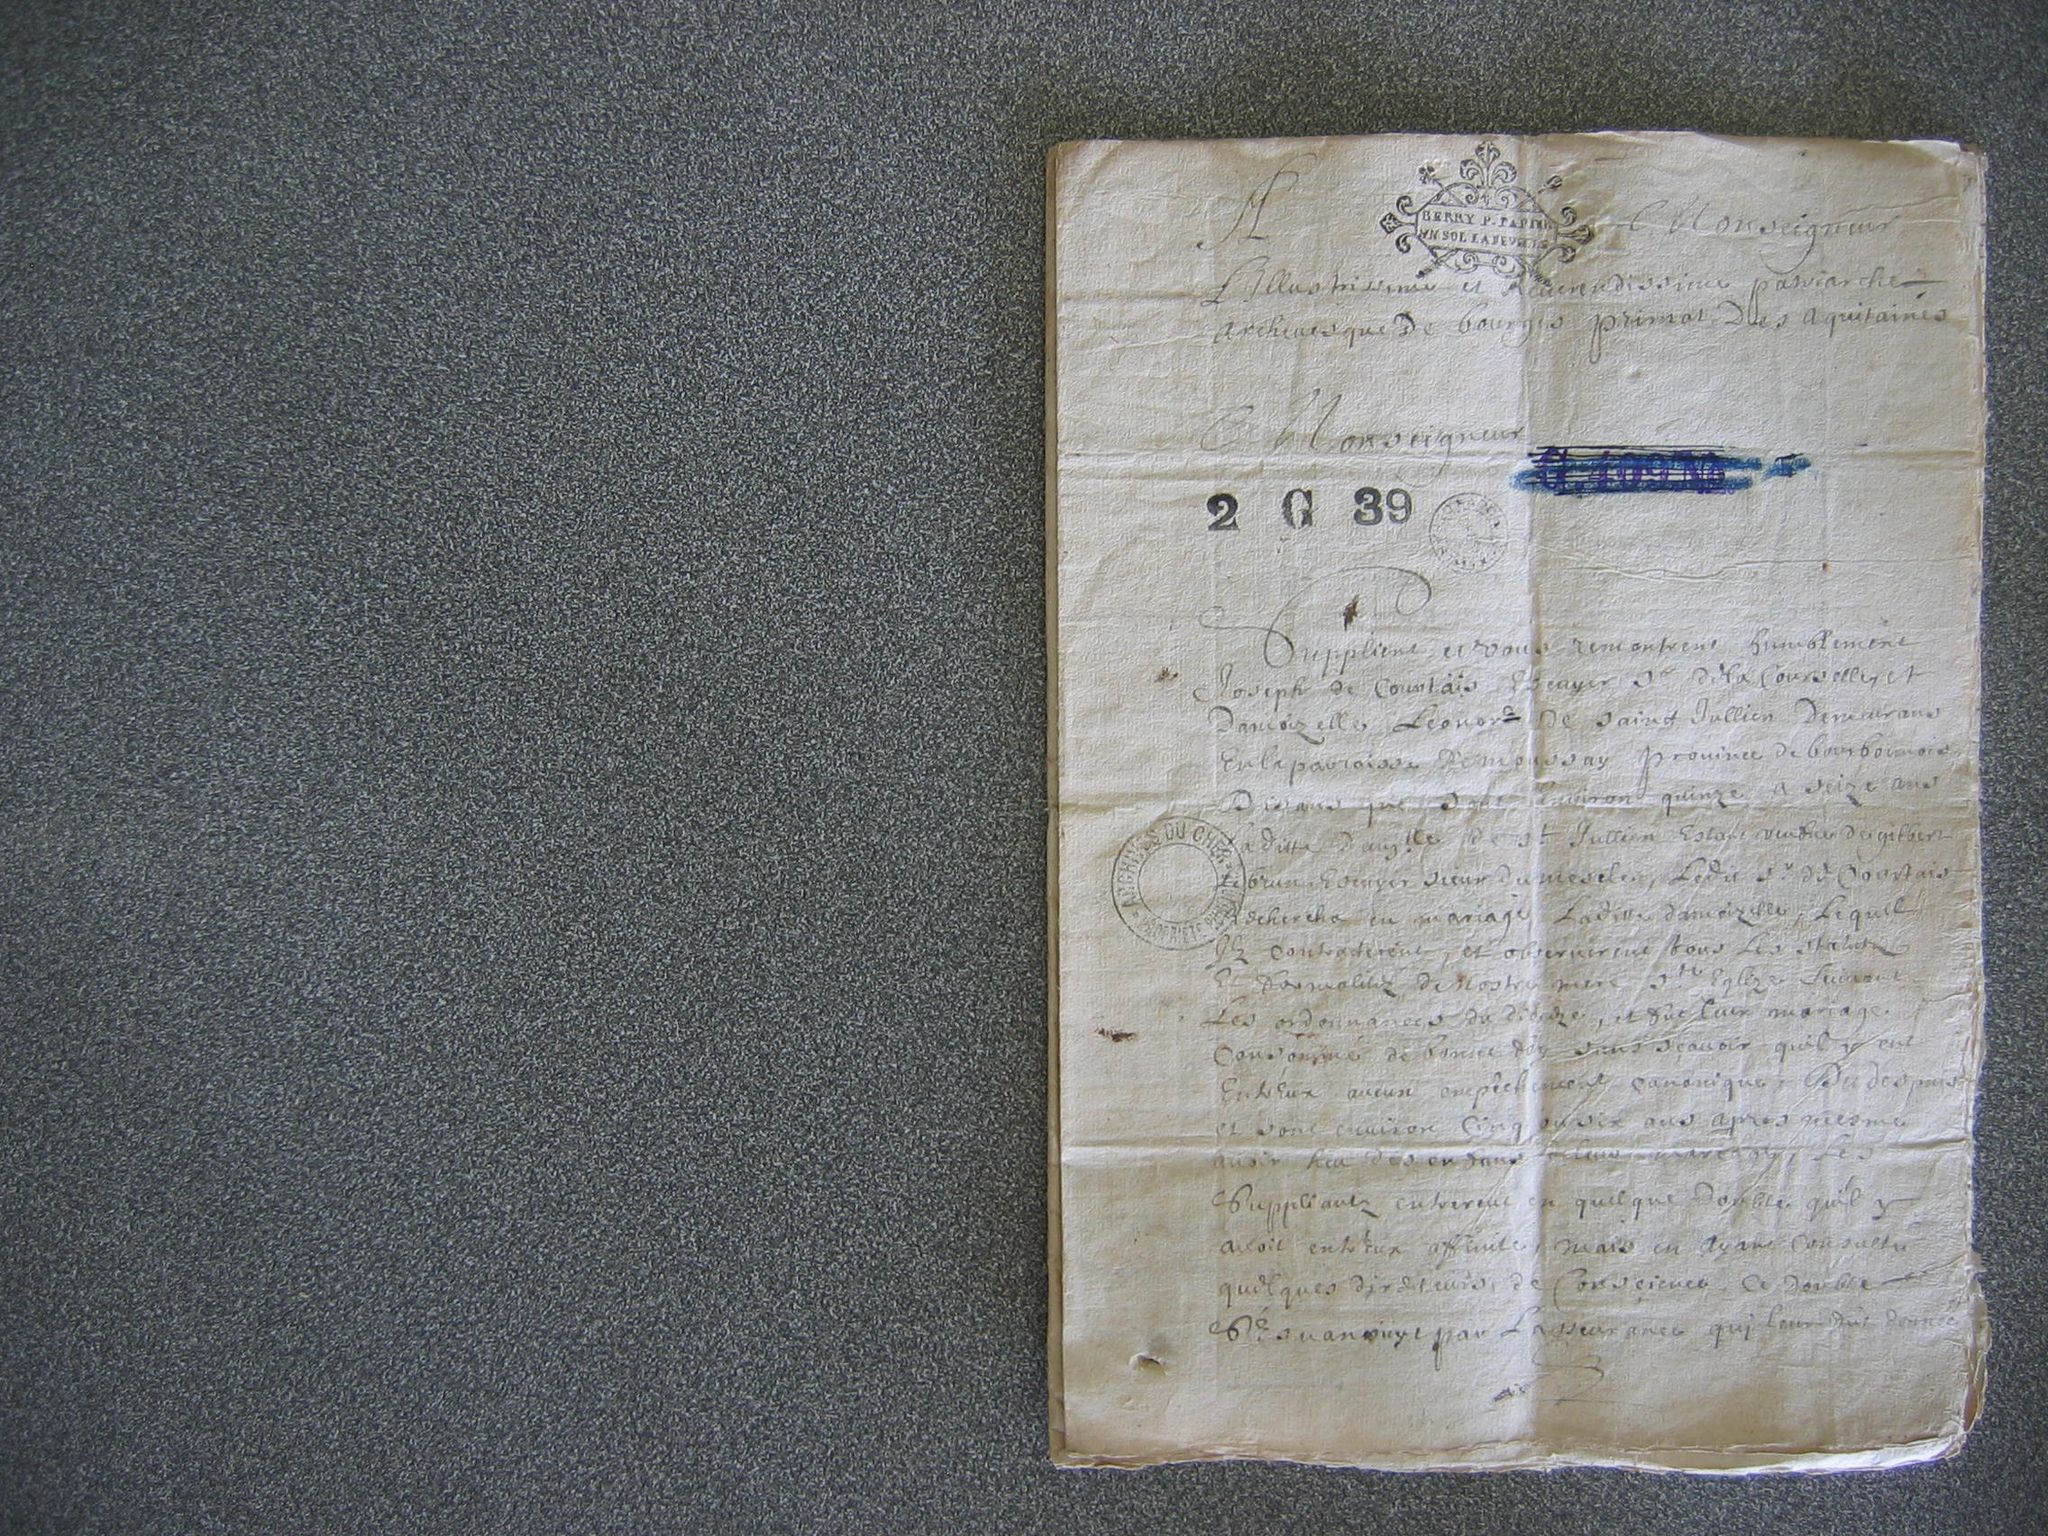 A Monseigneur
BERRY P. PAPIER
VN SOL LA FEVILLE
L'Illustrissime et Reuerendissime patriarche
archeuesque De bourges primat Des aquitaines
Monseigneur
2 G 39
Supplient et Vous remontrent humblement
Joseph de Courtais Escuyer Sr de la Courselle, et
Damoizelle Leonore De Saint Jullien Demeurans
En la parroisse De moussay province de bourbonnois
Disans que sont Environ quinze a seize ans
Laditte Damlle de St Jullien Estant veufve De gilbert
lebrun Escuyer sieur du mesclet, Ledit Sr de Courtais
Rechercha en mariage Laditte damoizelle, Lequel
Ilz contracterent, et observerent tous les statutz
Et formalitez De Nostre mere Ste Eglize suivant
Les ordonnances du dioceze, et fut leur mariage
Consommé de bonne foy sans sçavoir quil y eut
Entr'Eux aucun empêchement canonique, Du despuis
et sont environ Cinq ou six ans apres mesme
avoir heu des enfans de leur mariage, Les
Suppliantz entrerent en quelque Doubte quil y
avoit entr'Eux affinité, mais en Ayant Consulté
quelques directeurs de Conscience, Ce doubte
S'Esvanouyt par L'asseurance qui leur fut donnée
ARCHIVES DU CHER
PROPRIÉTÉ PUBLIQUE